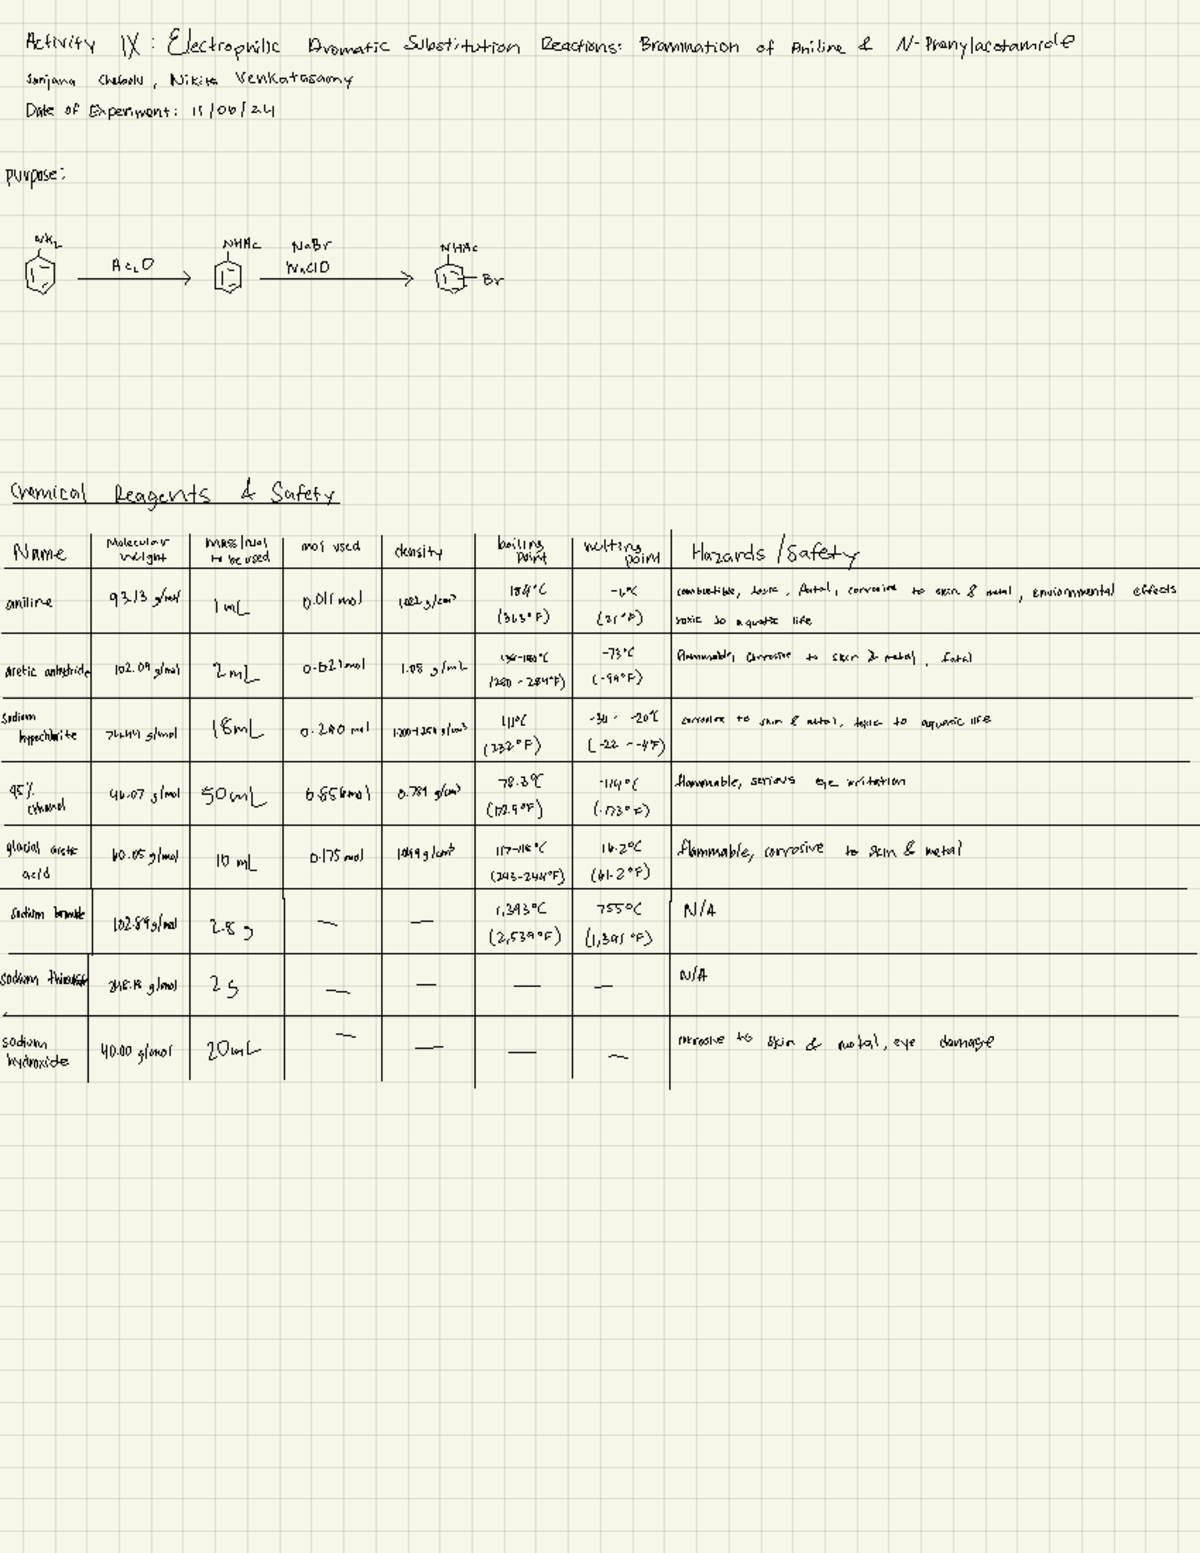 Activity IX: Electrophilic Aromatic Substitution Reactions: Bromination of Aniline & N-Phenylacetamide
Sanjana, Nikita Venkatasamy
Date of Experiment: 11/06/24
purpose:
NH2 NHAc NaBr NHAc
Ac2O NaClO
Br
Chemical Reagents & Safety
Name Molecular Weight Mass/mol to be used mol used density boiling point melting point Hazards/Safety
aniline 93.13 g/mol 1 mL 0.011 mol 184°C (363°F) -6°C (21°F) combustible, toxic, fatal, corrosive to skin & metal, environmental effects
toxic to aquatic life
acetic anhydride 102.09 g/mol 2 mL 0.021 mol 1.08 g/mL (280-284°F) -73°C (-99°F) flammable, corrosive to skin & metal, fatal
sodium hypochlorite 74.44 g/mol 18 mL 0.280 mol 111°C (232°F) -30 - -20°C (-22 - -4°F) corrosive to skin & metal, toxic to aquatic life
95% ethanol 46.07 g/mol 50 mL 0.856 mol 0.789 g/cm³ 78.3°C (172.9°F) -114°C (-173°F) flammable, serious eye irritation
glacial acetic acid 60.05 g/mol 10 mL 0.175 mol 1.049 g/cm³ 117-118°C (243-244°F) 16.2°C (61.2°F) flammable, corrosive to skin & metal
sodium bromide 102.89 g/mol 2.8 g — — 1,393°C (2,539°F) 755°C (1,391°F) N/A
sodium 248.18 g/mol 2 g — — — — N/A
sodium hydroxide 40.00 g/mol 20 mL — — — — corrosive to skin & metal, eye damage